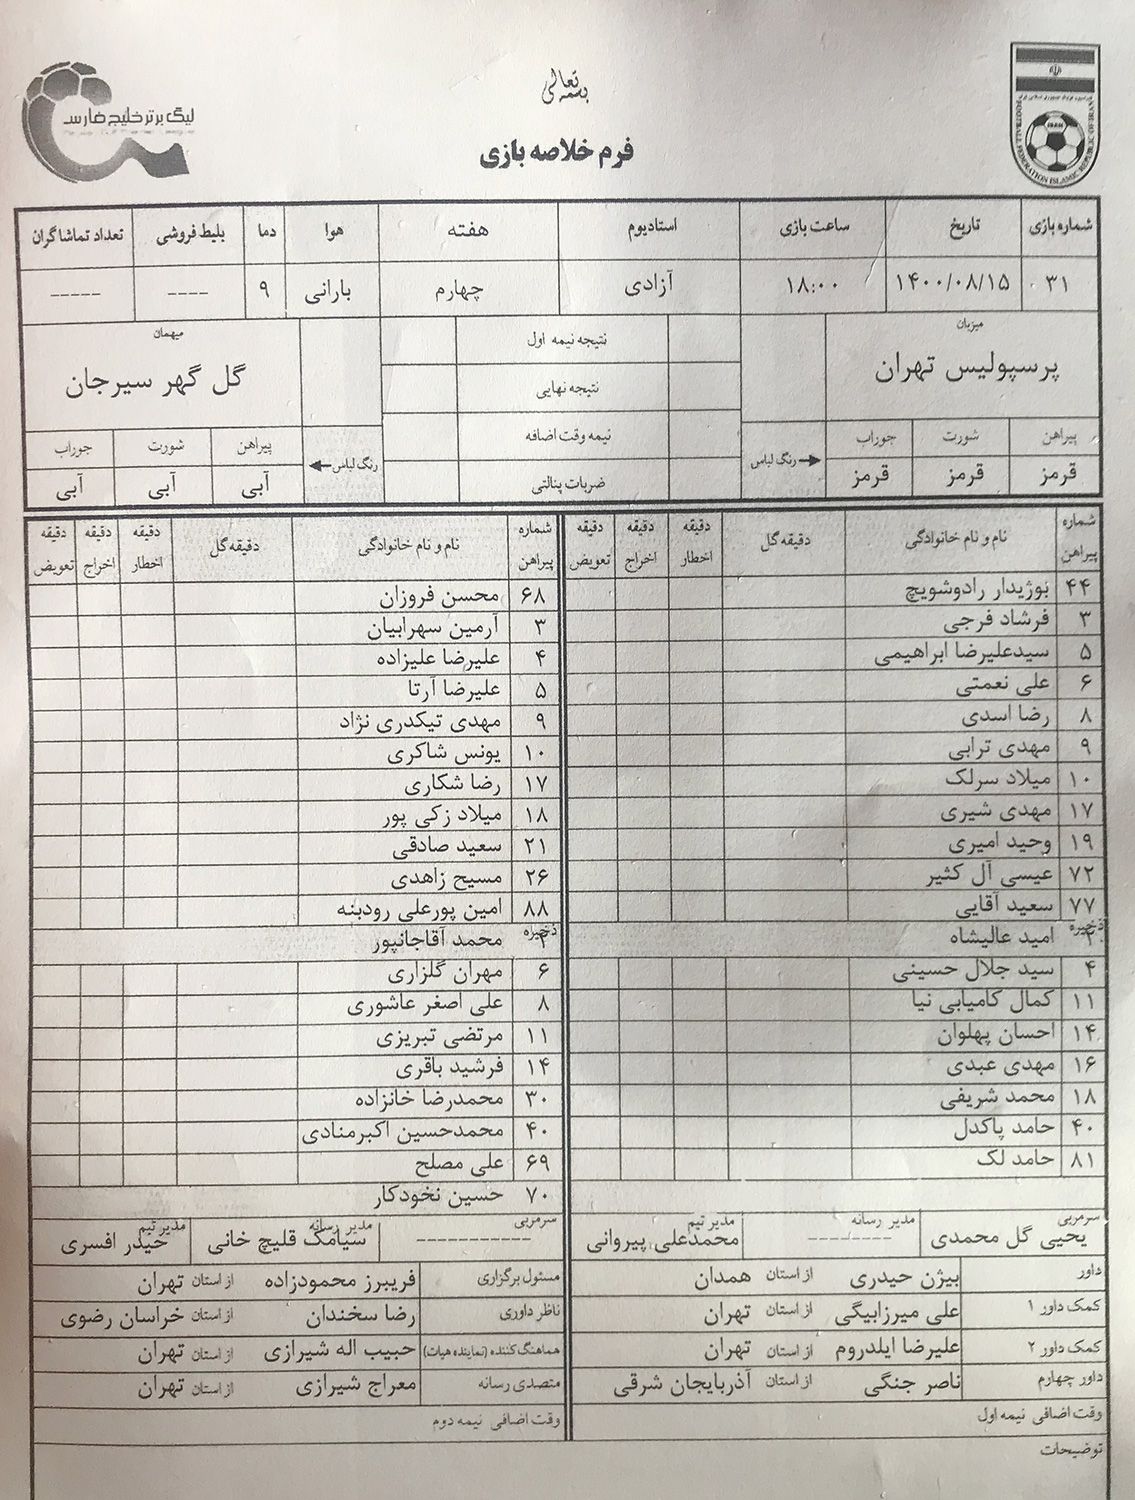 بسمه تعالی
لیگ برتر خلیج فارس
FOOTBALL FEDERATION ISLAMIC REPUBLIC OF IRAN
فرم خلاصه بازی
شماره بازی تاریخ ساعت بازی استادیوم هفته هوا دما بلیط فروشی تعداد تماشاگران
۳۱ ۱۴۰۰/۰۸/۱۵ ۱۸:۰۰ آزادی چهارم بارانی ۹ ---- -----
میزبان
پرسپولیس تهران
پیراهن شورت جوراب
قرمز قرمز قرمز
رنگ لباس
نتیجه نیمه اول
نتیجه نهایی
نیمه وقت اضافه
ضربات پنالتی
میهمان
گل گهر سیرجان
رنگ لباس
پیراهن شورت جوراب
آبی آبی آبی
شماره پیراهن نام و نام خانوادگی دقیقه گل دقیقه اخطار دقیقه اخراج دقیقه تعویض
۴۴ بوژیدار رادوشویچ
۳ فرشاد فرجی
۵ سیدعلیرضا ابراهیمی
۶ علی نعمتی
۸ رضا اسدی
۹ مهدی ترابی
۱۰ میلاد سرلک
۱۷ مهدی شیری
۱۹ وحید امیری
۷۲ عیسی آل کثیر
۷۷ سعید آقایی
ذخیره
۲ امید عالیشاه
۴ سید جلال حسینی
۱۱ کمال کامیابی نیا
۱۴ احسان پهلوان
۱۶ مهدی عبدی
۱۸ محمد شریفی
۴۰ حامد پاکدل
۸۱ حامد لک
سرمربی یحیی گل محمدی مدیر رسانه -------- مدیر تیم محمدعلی پیروانی
شماره پیراهن نام و نام خانوادگی دقیقه گل دقیقه اخطار دقیقه اخراج دقیقه تعویض
۶۸ محسن فروزان
۳ آرمین سهرابیان
۴ علیرضا علیزاده
۵ علیرضا آرتا
۹ مهدی تیکدری نژاد
۱۰ یونس شاکری
۱۷ رضا شکاری
۱۸ میلاد زکی پور
۲۱ سعید صادقی
۲۶ مسیح زاهدی
۸۸ امین پورعلی رودبنه
ذخیره
۲ محمد آقاجانپور
۶ مهران گلزاری
۸ علی اصغر عاشوری
۱۱ مرتضی تبریزی
۱۴ فرشید باقری
۳۰ محمدرضا خانزاده
۴۰ محمدحسین اکبرمنادی
۶۹ علی مصلح
۷۰ حسین نخودکار
سرمربی ----------- مدیر رسانه سیامک قلیچ خانی مدیر تیم حیدر افسری
داور بیژن حیدری از استان همدان
کمک داور ۱ علی میرزابیگی از استان تهران
کمک داور ۲ علیرضا ایلدروم از استان تهران
داور چهارم ناصر جنگی از استان آذربایجان شرقی
وقت اضافی نیمه اول
مسئول برگزاری فریبرز محمودزاده از استان تهران
ناظر داوری رضا سخندان از استان خراسان رضوی
هماهنگ کننده (نماینده هیات) حبیب اله شیرازی از استان تهران
متصدی رسانه معراج شیرازی از استان تهران
وقت اضافی نیمه دوم
توضیحات